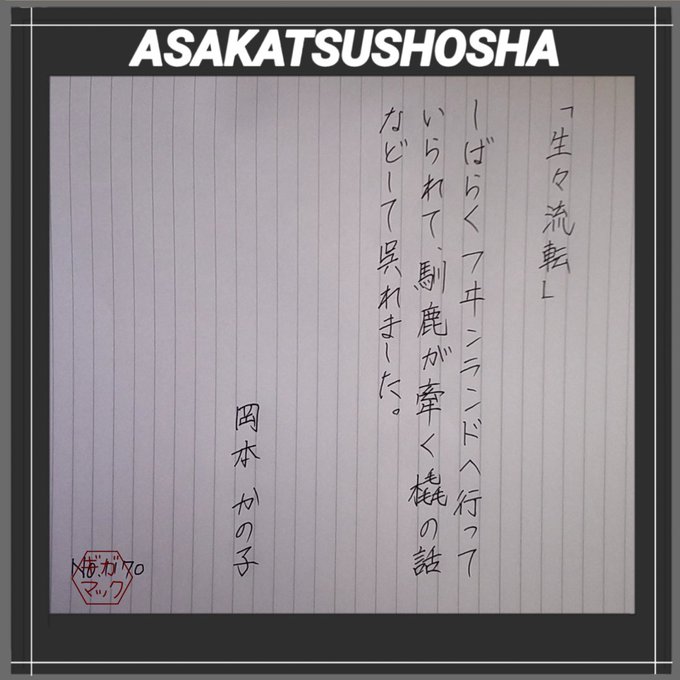 ASAKATSUSHOSHA
「生々流転」
しばらくフヰンランドへ行って
いられて、馴鹿が牽く橇の話
などして呉れました。
岡本 かの子
No. 70
ギガ
マック